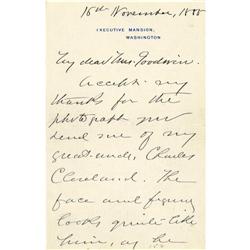 15th November, 1888
EXECUTIVE MANSION,
WASHINGTON
My dear Mrs. Goodwin.
Accept my
thanks for the
photograph you
send me of my
great-uncle, Charles
Cleveland. The
face and figure
looks quite like
him, as he